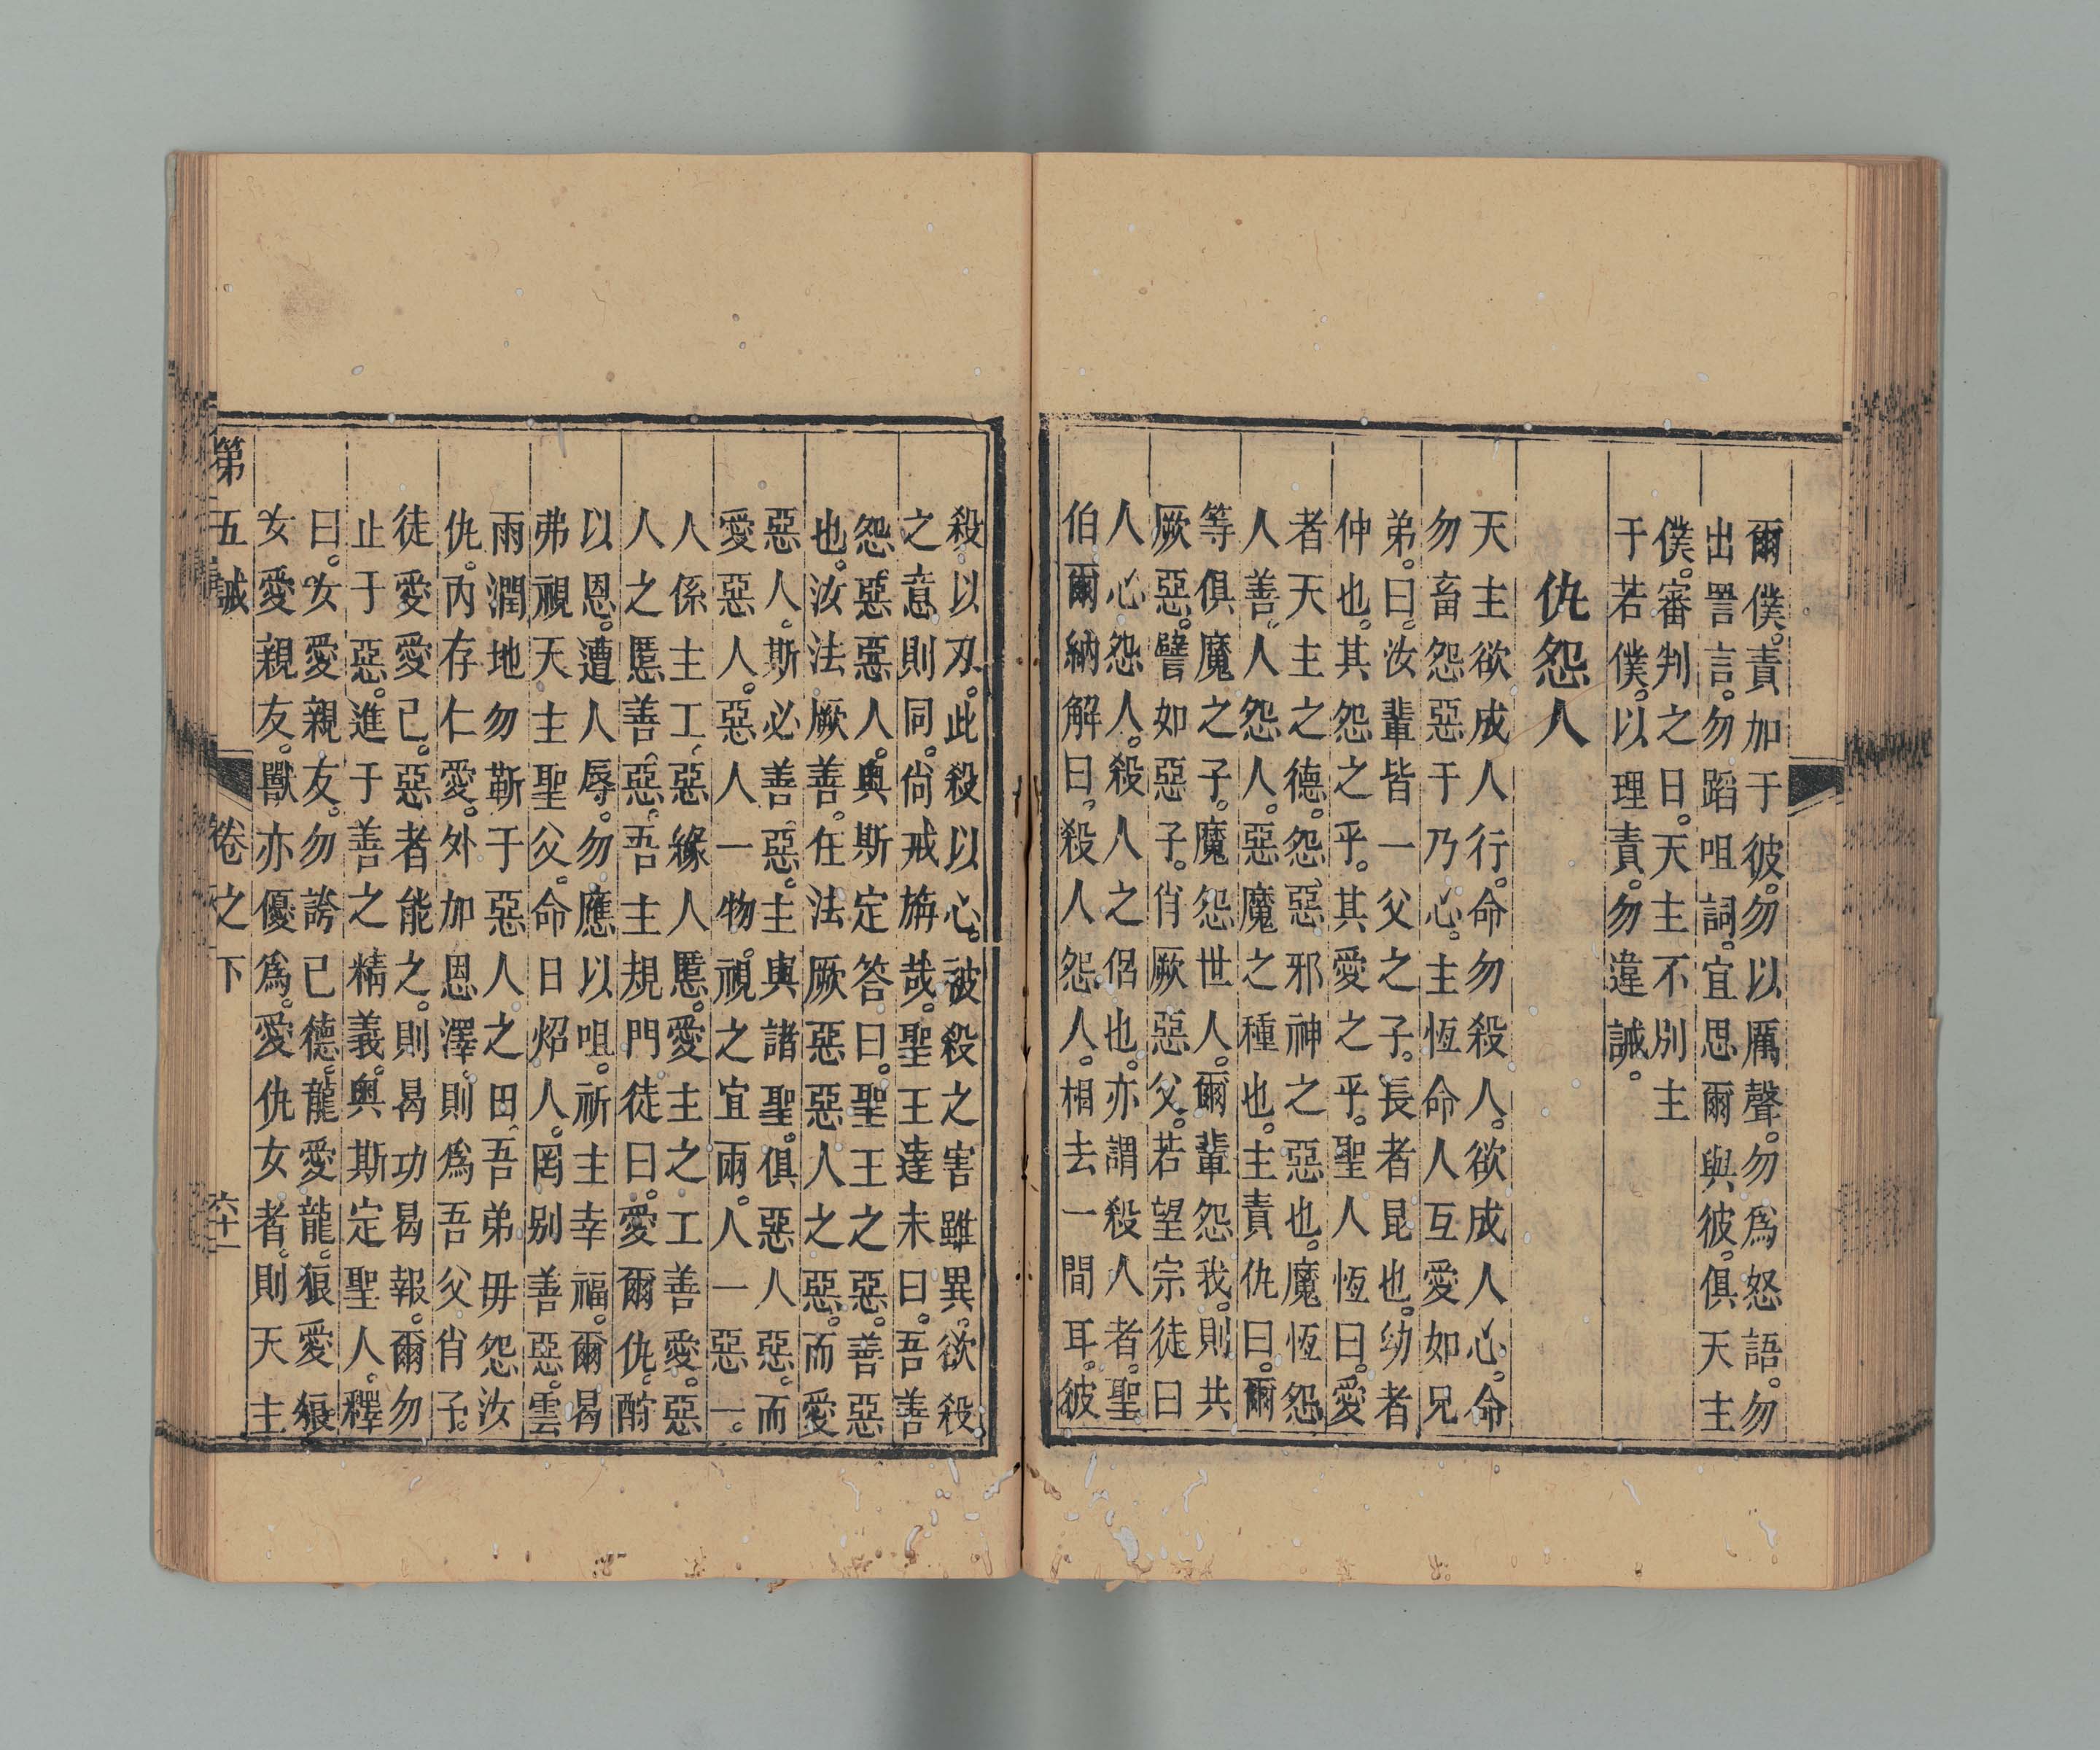 爾僕。責加于彼。勿以厲聲。勿爲怒語。勿
出詈言。勿蹈咀詞。宜思爾與彼。俱天主
僕。審判之日。天主不別主
于若僕。以理責。勿違誡。
仇怨人
天主欲成人行。命勿殺人。欲成人心。命
勿畜怨惡于乃心。主恆命人互愛如兄
弟。曰。汝輩皆一父之子。長者昆也。幼者
仲也。其怨之乎。其愛之乎。聖人恆曰。愛
者天主之德。怨惡邪神之惡也。魔恆怨
人善。人怨人。惡魔之種也。主責仇曰。爾
等俱魔之子。魔怨世人。爾輩怨我。則共
厥惡。譬如惡子。肖厥惡父。若望宗徒曰
人心怨人。殺人之侶也。亦謂殺人者。聖
伯爾納解曰。殺人怨人。相去一間耳。彼
殺以刃。此殺以心。被殺之害雖異。欲殺
之意則同。尙戒旃哉。聖王達未曰。吾善
怨惡惡人。與斯定答曰。聖王之惡。善惡
也。汝法厥善。在法厥惡惡人之惡。而愛
惡人。斯必善惡。主與諸聖。俱惡人惡。而
愛惡人。惡人一物。視之宜兩。人一惡一。
人係主工。惡緣人慝。愛主之工善愛。惡
人之慝善惡。吾主規門徒曰。愛爾仇。酧
以恩。遭人辱。勿應以咀。祈主幸福。爾曷
弗視天主聖父。命日炤人。罔别善惡。雲
雨潤地勿靳于惡人之田。吾弟毋怨汝
仇。內存仁愛。外加恩澤。則爲吾父肖子。
徒愛愛己。惡者能之。則曷功曷報。爾勿
止于惡。進于善之精義。與斯定聖人。釋
曰。女愛親友。勿誇己德。龍愛龍。狼愛狼
女愛親友。獸亦優爲。愛仇女者。則天主
第五誡 卷之下 六十一